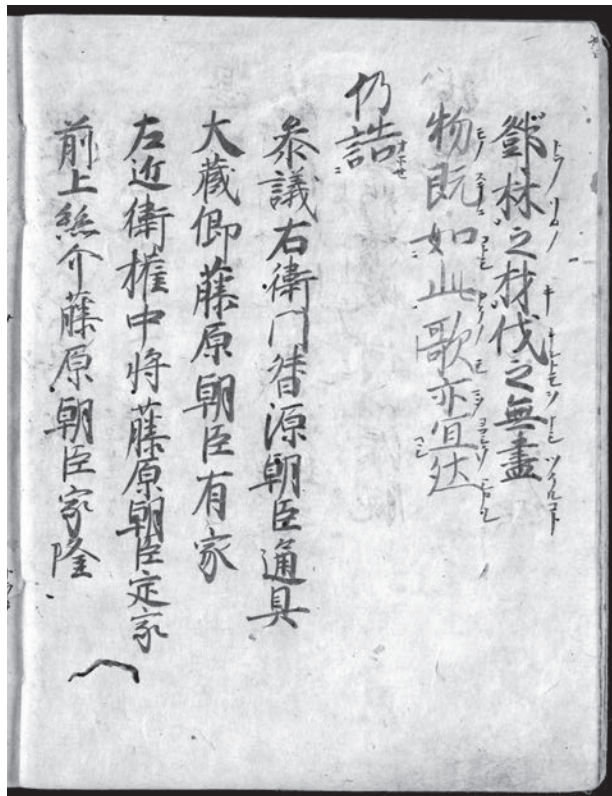 鄧林之材伐之無盡
物既如此歌亦宜然
仍誥
参議右衛門督源朝臣通具
大蔵卿藤原朝臣有家
左近衛權中将藤原朝臣定家
前上総介藤原朝臣家隆